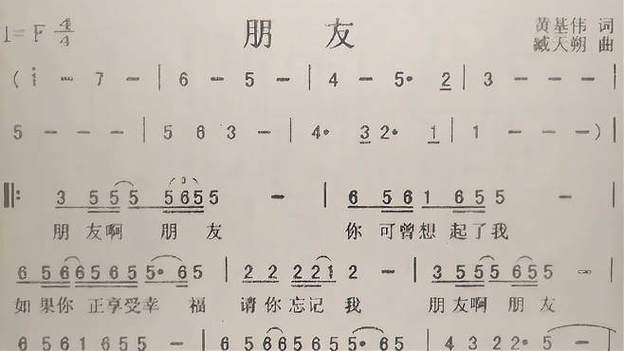 1=F 4/4 朋 友 黄基伟 词
臧天朔 曲
( i - 7 - | 6 - 5 - | 4 - 5· 2 | 3 - - - |
5 - - - | 5 6 3 - | 4· 3 2· 1 | 1 - - - ) |
‖: 3 5 5 5 5 6 5 5 - | 6 5 6 1 6 5 5 - |
朋 友啊 朋 友 你 可曾想 起了我
6 5 6 6 5 6 5 5· 6 5 | 2 2 2 2 1 2 - | 3 5 5 5 6 5 5 -
如 果你 正享受幸 福 请你忘记 我 朋友啊 朋友
6 5 6 1 6 5 5 - | 6 5 6 6 5 6 5 5· 6 5 | 4 3 2 2· 5 -